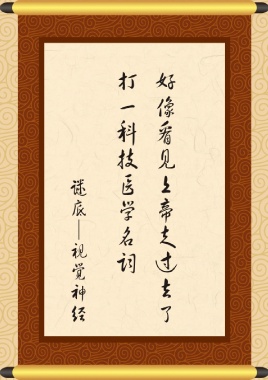 好像看见上帝走过去了
打一科技医学名词
谜底——视觉神经